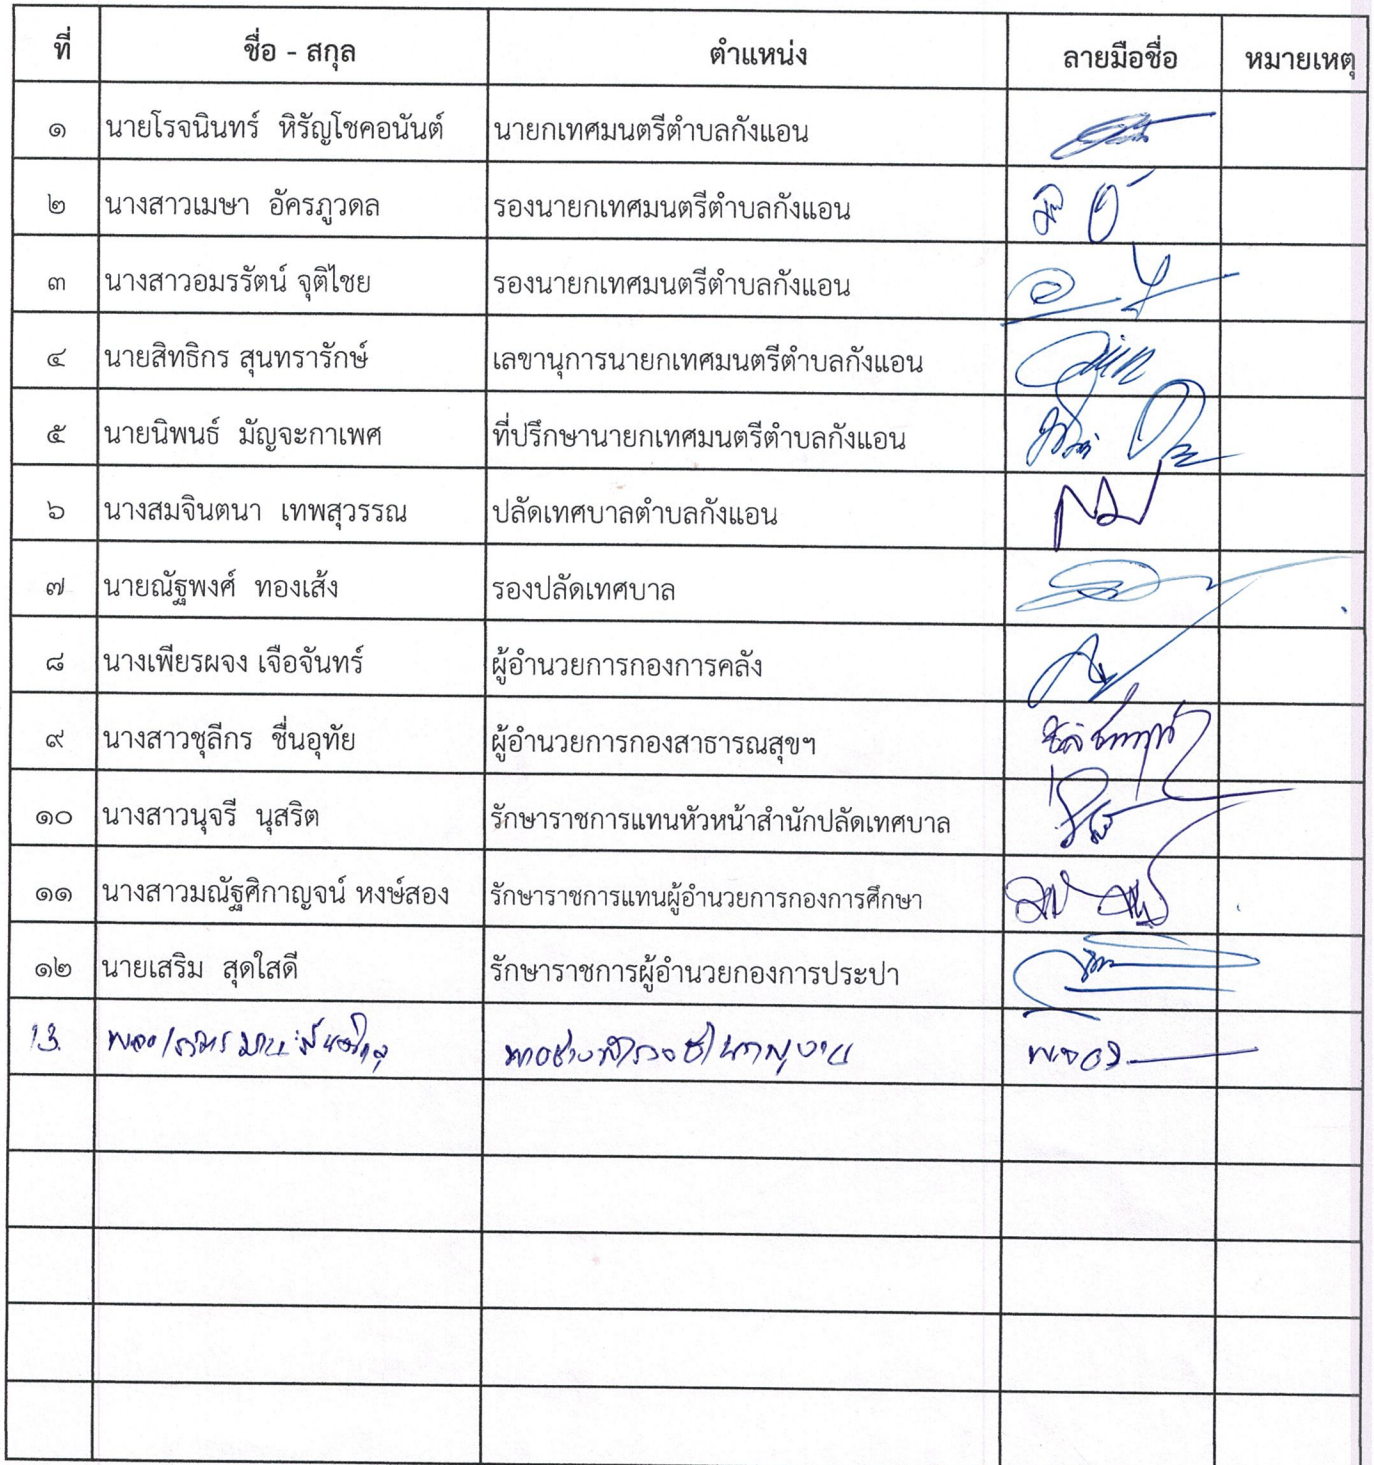 ที่ ชื่อ - สกุล ตำแหน่ง ลายมือชื่อ หมายเหตุ
๑ นายโรจนินทร์ หิรัญโชคอนันต์ นายกเทศมนตรีตำบลกังแอน
๒ นางสาวเมษา อัครภูวดล รองนายกเทศมนตรีตำบลกังแอน
๓ นางสาวอมรรัตน์ จุติไชย รองนายกเทศมนตรีตำบลกังแอน
๔ นายสิทธิกร สุนทรารักษ์ เลขานุการนายกเทศมนตรีตำบลกังแอน
๕ นายนิพนธ์ มัญจะกาเพศ ที่ปรึกษานายกเทศมนตรีตำบลกังแอน
๖ นางสมจินตนา เทพสุวรรณ ปลัดเทศบาลตำบลกังแอน
๗ นายณัฐพงศ์ ทองเส้ง รองปลัดเทศบาล
๘ นางเพียรผจง เจือจันทร์ ผู้อำนวยการกองการคลัง
๙ นางสาวชุลีกร ชื่นอุทัย ผู้อำนวยการกองสาธารณสุขฯ
๑๐ นางสาวนุจรี นุสริต รักษาราชการแทนหัวหน้าสำนักปลัดเทศบาล
๑๑ นางสาวมณัฐศิกาญจน์ หงษ์สอง รักษาราชการแทนผู้อำนวยการกองการศึกษา
๑๒ นายเสริม สุดใสดี รักษาราชการผู้อำนวยกองการประปา
13.